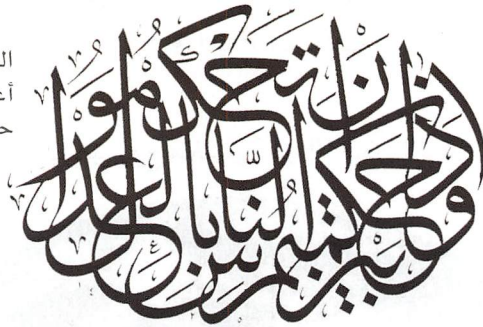 وإذا حكمتم بين الناس أن تحكموا بالعدل
ال
أع
ح